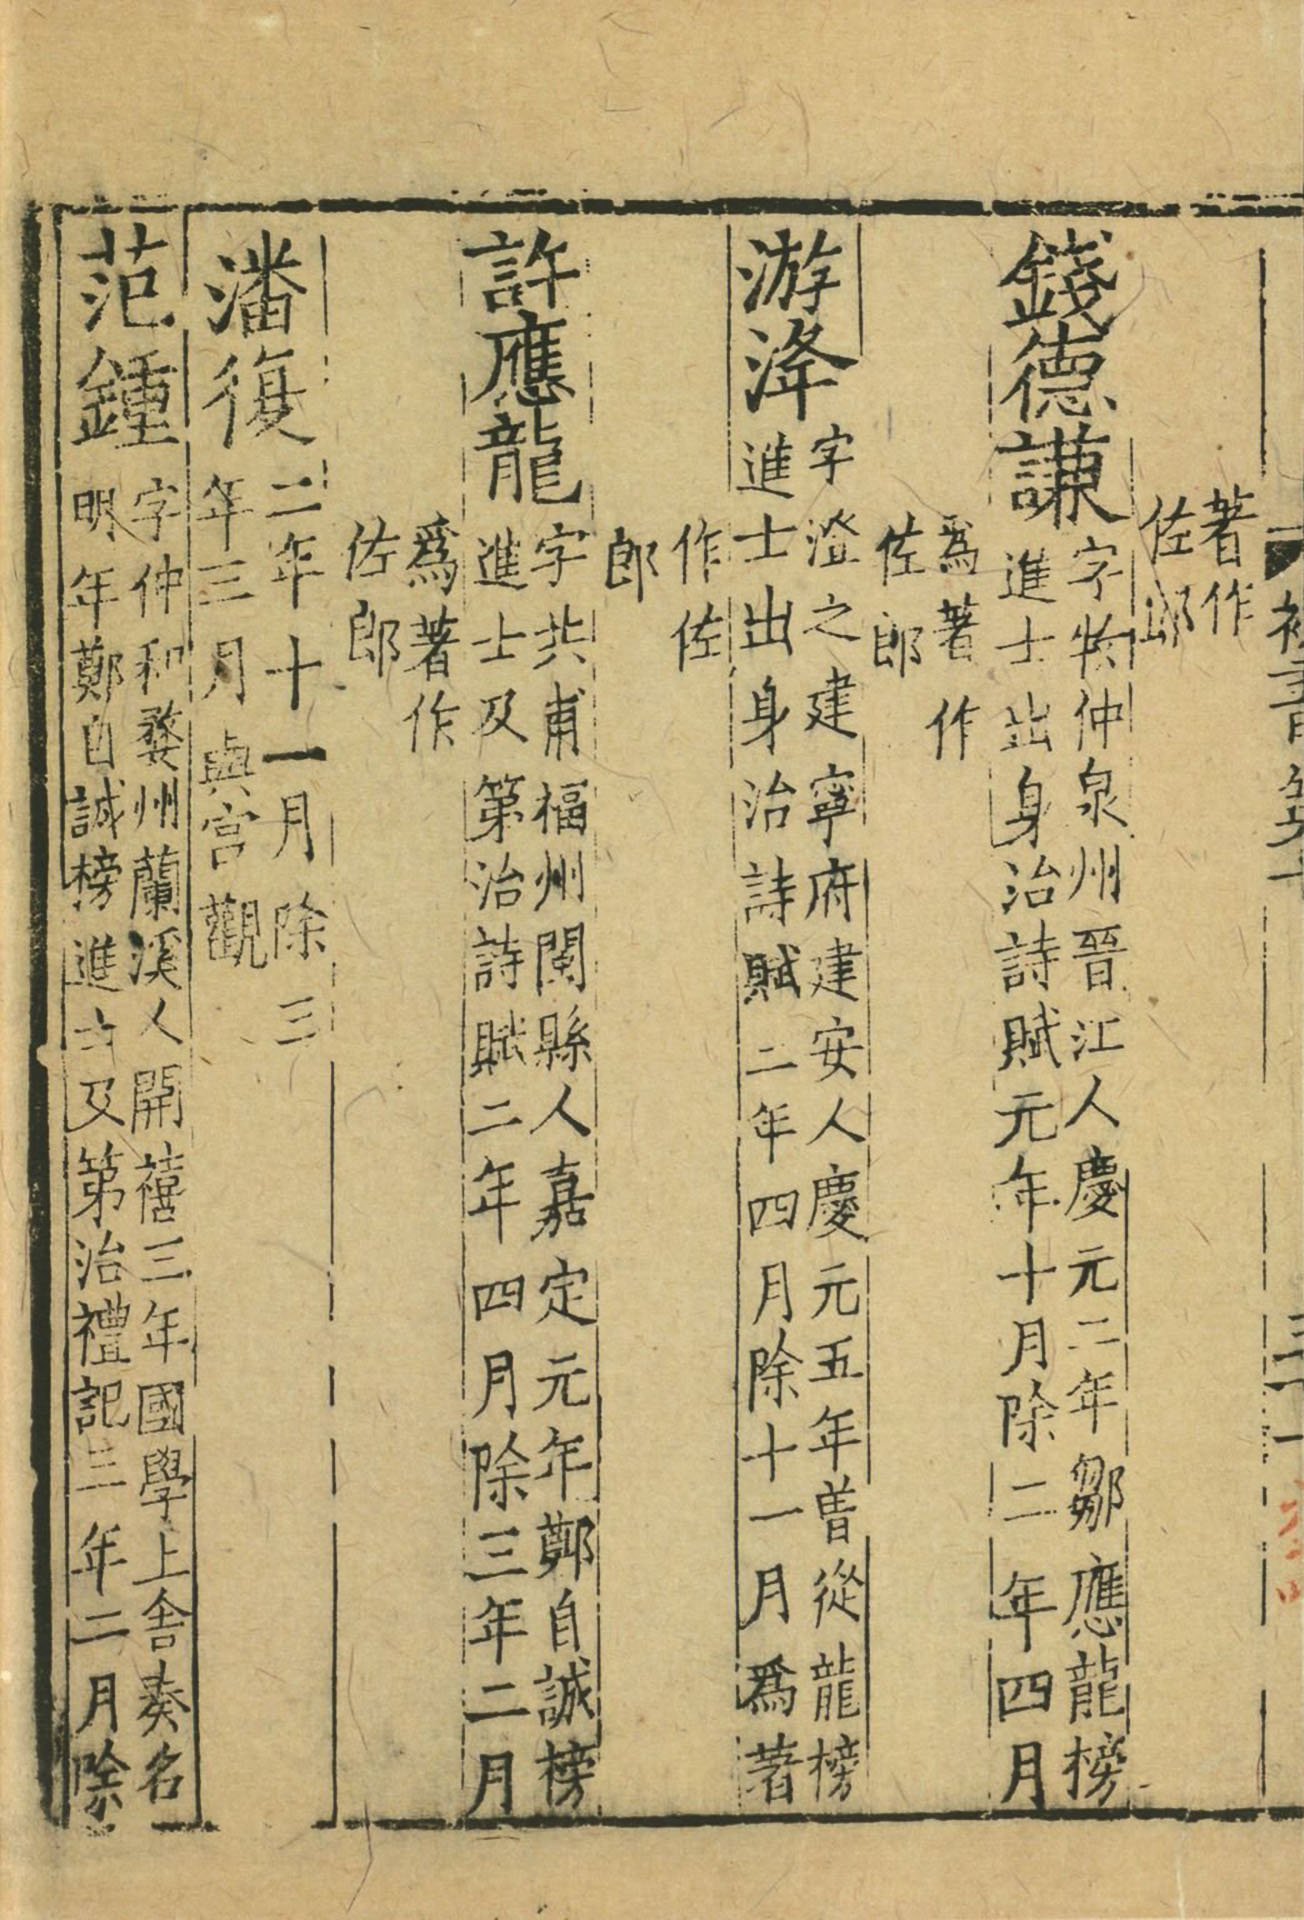 著作
佐郎
錢德謙
字仲泉州晉江人慶元二年鄒應龍榜
進士出身治詩賦元年十月除二年四月
爲著作
佐郎
游洚
字澄之建寧府建安人慶元五年曾從龍榜
進士出身治詩賦二年四月除十一月爲著
作佐
郎
許應龍
字共甫福州閩縣人嘉定元年鄭自誠榜
進士及第治詩賦二年四月除三年二月
爲著作
佐郎
潘復
二年十一月除三
年三月與宮觀
范鍾
字仲和婺州蘭溪人開禧三年國學上舍奏名
明年鄭自誠榜進士及第治禮記三年二月除